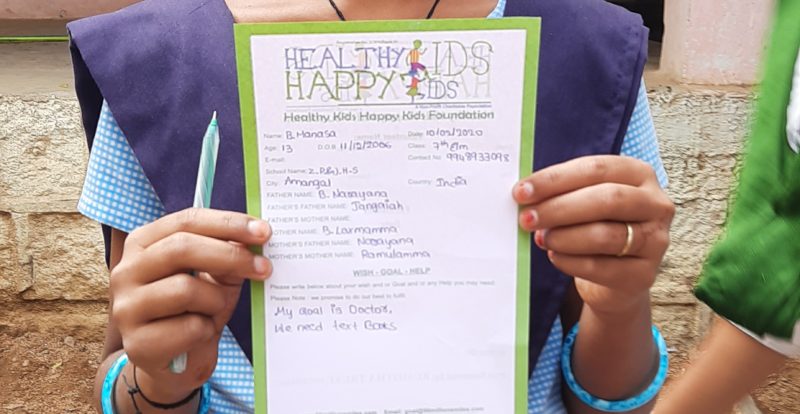 HEALTHY KIDS
HAPPY KIDS
Healthy Kids Happy Kids Foundation
Name: B. Manasa Date: 10/05/2020
Age: 13 D.O.B 11/12/2006 Class: 7th E/m
E-mail: Contact No 9948933098
School Name: Z.P.(G).H.S
City: Amangal Country: India
FATHER NAME: B. Narayana
FATHER'S FATHER NAME: Jangaiah
FATHER'S MOTHER NAME:
MOTHER NAME: B. Laxmamma
MOTHER'S FATHER NAME: Narayana
MOTHER'S MOTHER NAME: Ramulamma
WISH - GOAL - HELP
Please write below about your wish and or Goal and or any Help you may need:
Please Note : we promise to do out best to fulfil.
My Goal is Doctor.
We need text Books